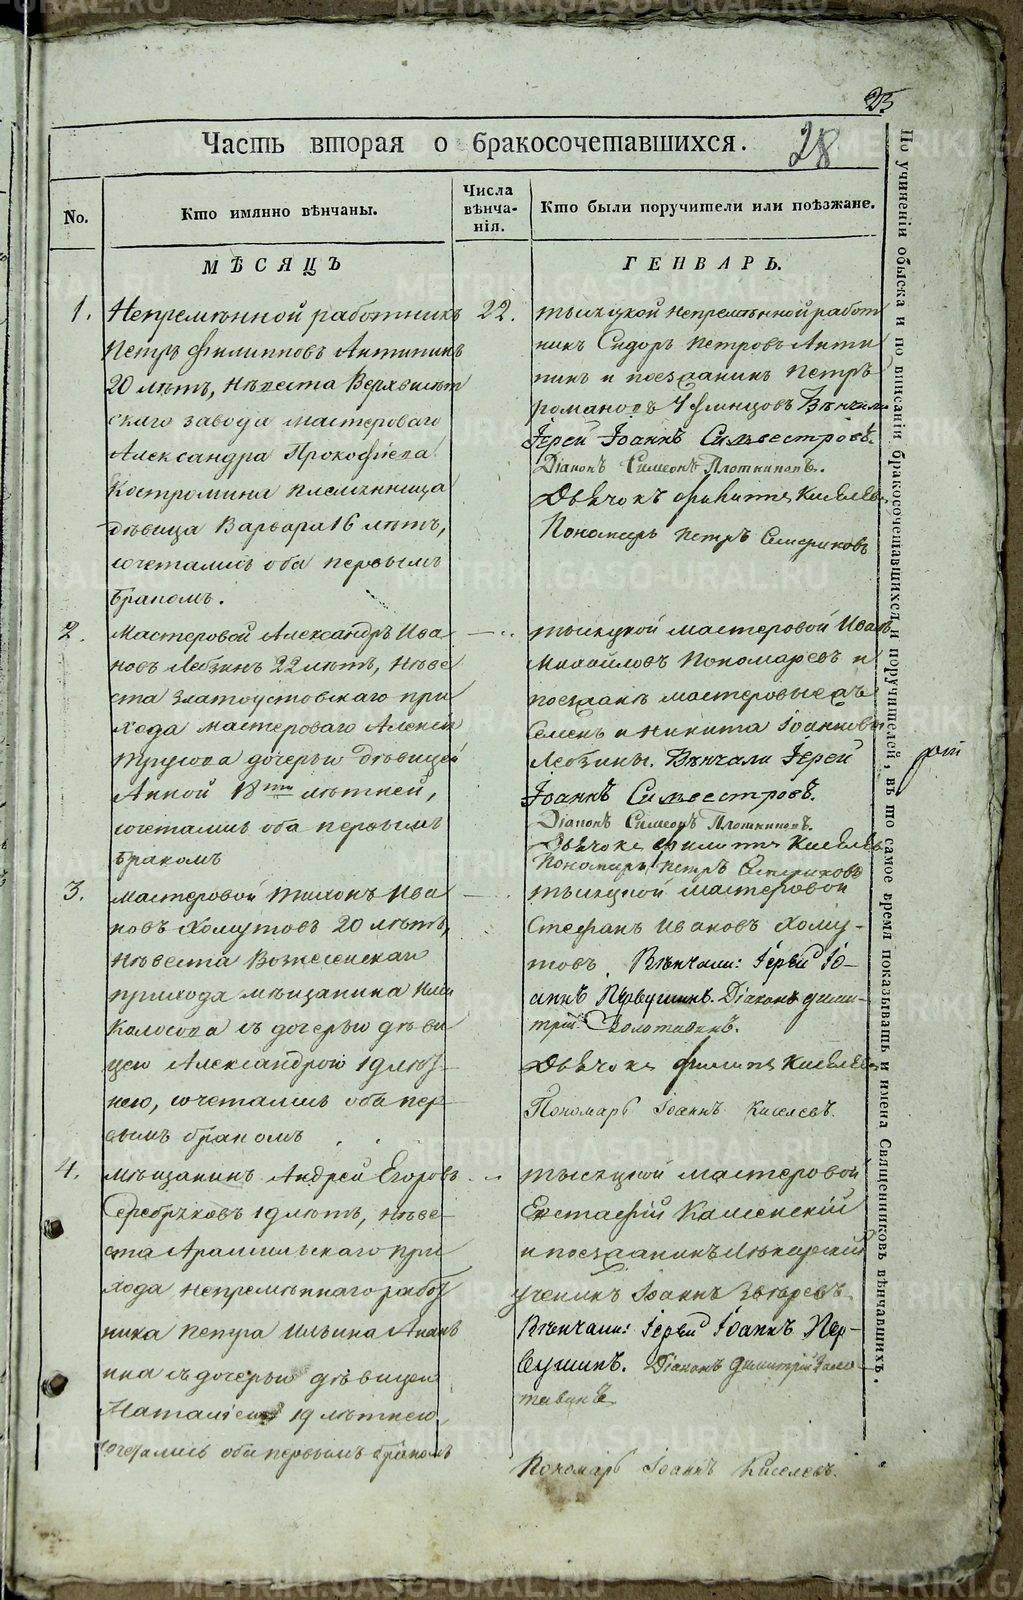 25
28
Часть вторая о бракосочетавшихся.
No.
Кто имянно вѣнчаны.
Числа вѣнча-нія.
Кто были поручители или поѣзжане.
МѢСЯЦЪ
ГЕНВАРЬ.
1.
Непремѣнной работникъ
Петръ Филипповъ Антипинъ
20 лѣтъ, невѣста Верхъисет
скаго завода мастероваго
Александра Прокофіева
Костромина племянница
дѣвица Варвара 16 лѣтъ,
сочетались оба первымъ
бракомъ.
22.
тысяцкой непремѣнной работ
никъ Сидоръ Петровъ Анти
пинъ и поезжанинъ Петръ
Романовъ Вѣнчали
Іерей Іоаннъ Сильвестровъ.
Діаконъ Симеонъ Плотниковъ.
Дьячокъ Филиппъ Киселевъ
Пономарь Петръ
2.
Мастеровой Александръ Ива
новъ Лебзинъ 22 лѣтъ, невѣ
ста Златоустовскаго при
хода мастероваго Алексея
Трусова дочерью дѣвицей
Анной 18ти лѣтней,
сочетались оба первымъ
бракомъ
тысяцкой мастеровой Иванъ
Михайловъ Пономаревъ и
поезжанъ мастеровые
Семенъ и Никита Іоанновы
Лебзины. Вѣнчали Іерей
Іоаннъ Сильвестровъ.
Діаконъ Симеонъ Плотниковъ.
Дьячокъ Филиппъ Киселевъ
Пономарь Петръ
3.
Мастеровой Тихонъ Ива
новъ Хомутовъ 20 лѣтъ,
невѣста Вознесенскаго
прихода мѣщанина
Колосова съ дочерью дѣви
цею Александрою 19 лѣт
нею, сочетались оба пер
вымъ бракомъ
тысяцкой мастеровой
Стефанъ Ивановъ Хому-
товъ. Вѣнчали: Іерей Іо-
аннъ Первушинъ. Діаконъ Дими-
трій Золотавинъ.
Дьячокъ Филиппъ Киселевъ
Пономарь Іоаннъ Киселевъ.
4.
Мѣщанинъ Андрей Егоровъ
Серебряковъ 19 лѣтъ, невѣ
ста Арамильскаго при
хода непремѣннаго работ
ника Петра Ильина
съ дочерью дѣвицею
Наталіею 19 лѣтнею
сочетались оба первымъ бракомъ
тысяцкой мастеровой
Евстафій Каменскій
и поезжанинъ Лѣкарскій
ученикъ Іоаннъ Звѣревъ
Вѣнчали: Іерей Іоаннъ Пер-
вушинъ. Діаконъ Димитрій Золо-
тавинъ
Пономарь Іоаннъ Киселевъ.
По учиненіи обыска и по вписаніи бракосочетавшихся и поручителей, въ то самое время показывать и имена Священниковъ вѣнчавшихъ.